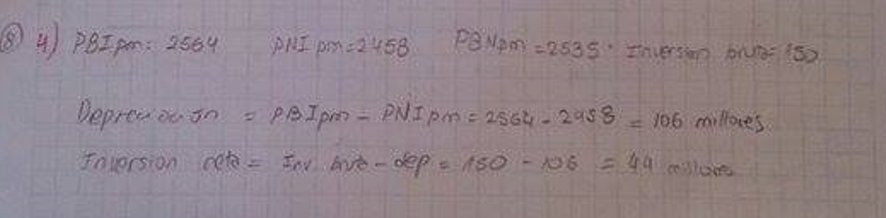 ⑧ 4) PBIpm: 2564 PNIpm=2458 PBNpm=2535. Inversion bruta=150
Depreciación = PBIpm - PNIpm = 2564 - 2458 = 106 millones
Inversion neta = Inv. bruta - dep = 150 - 106 = 44 millones